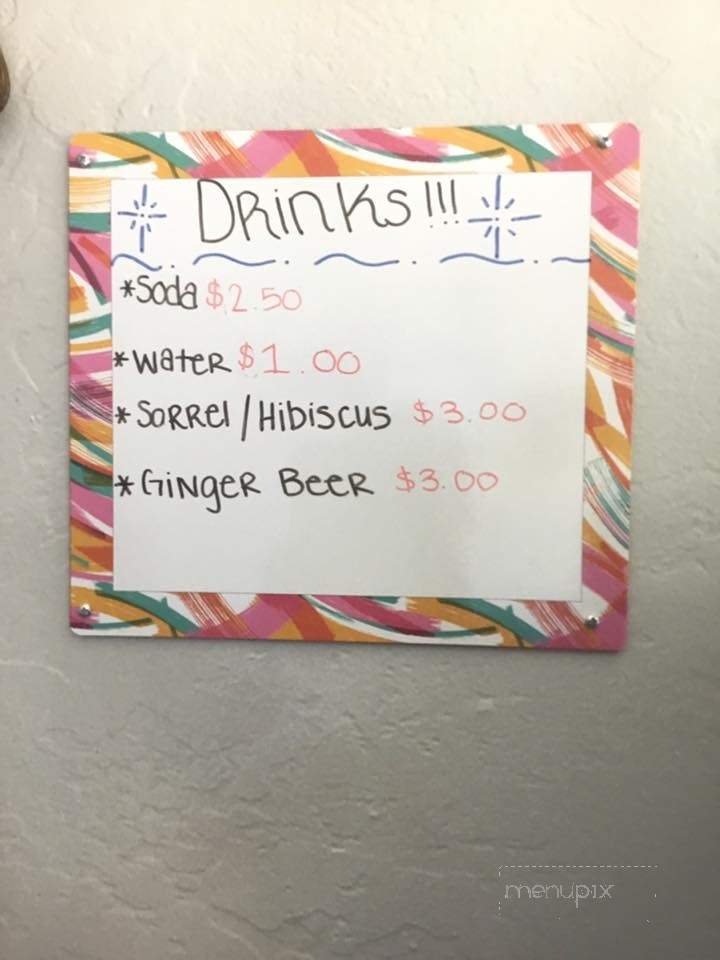 DRinKs!!!
*Soda $2.50
*WateR $1.00
*SoRRel/Hibiscus $3.00
*GiNgeR BeeR $3.00
menupix